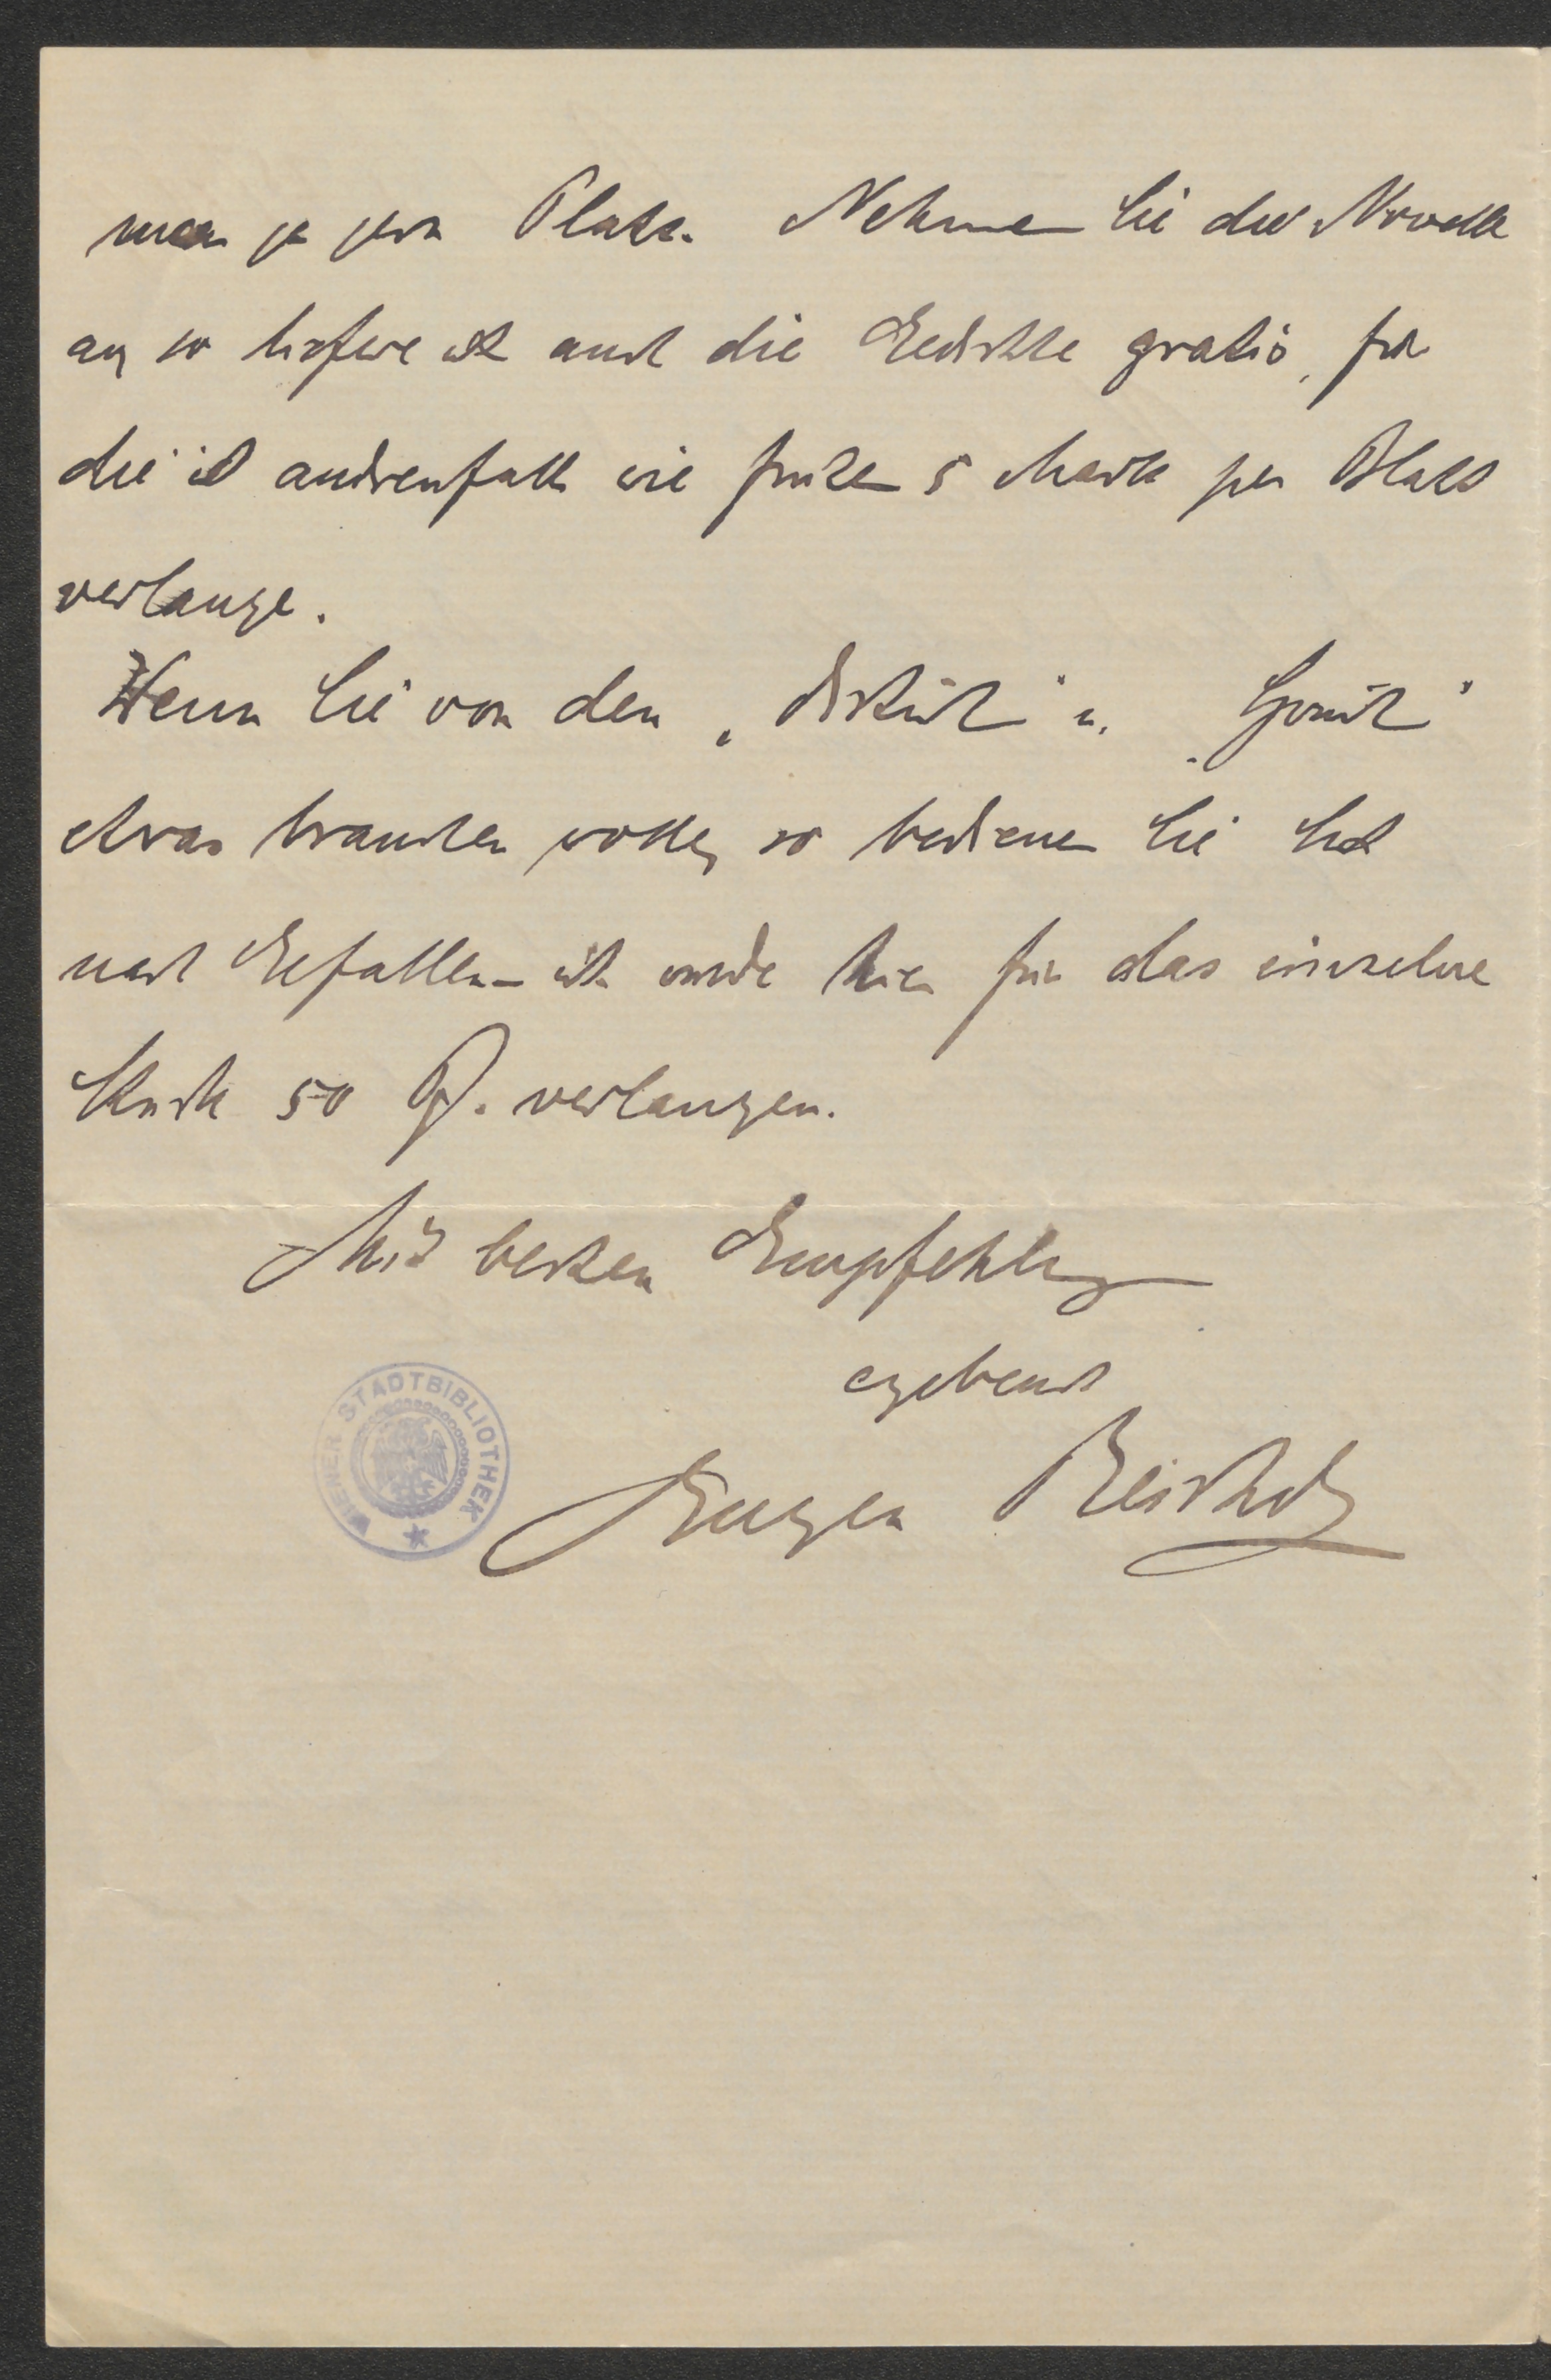 man ja gern Platz. Nehmen Sie die Novelle
an so liefere ich auch die Gedichte gratis, für
die ich andrenfalls wie früher 5 Mark per Blatt
verlange.
Wenn Sie von den „ " u. „ "
etwas brauchen wollen, so bedienen Sie Sich
nach Gefallen – ich würde hier für das einzelne
Stück 50 Pf. verlangen.
Mit besten Empfehlungen
ergebenst
Eugen Reichel
WIENER STADTBIBLIOTHEK